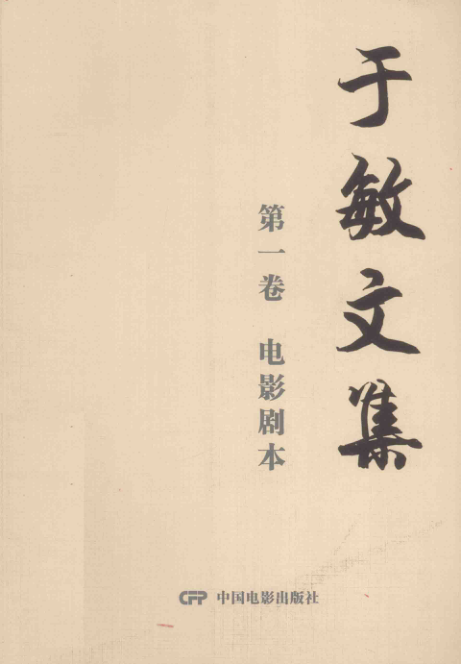 于敏文集
第一卷 电影剧本
CFP 中国电影出版社